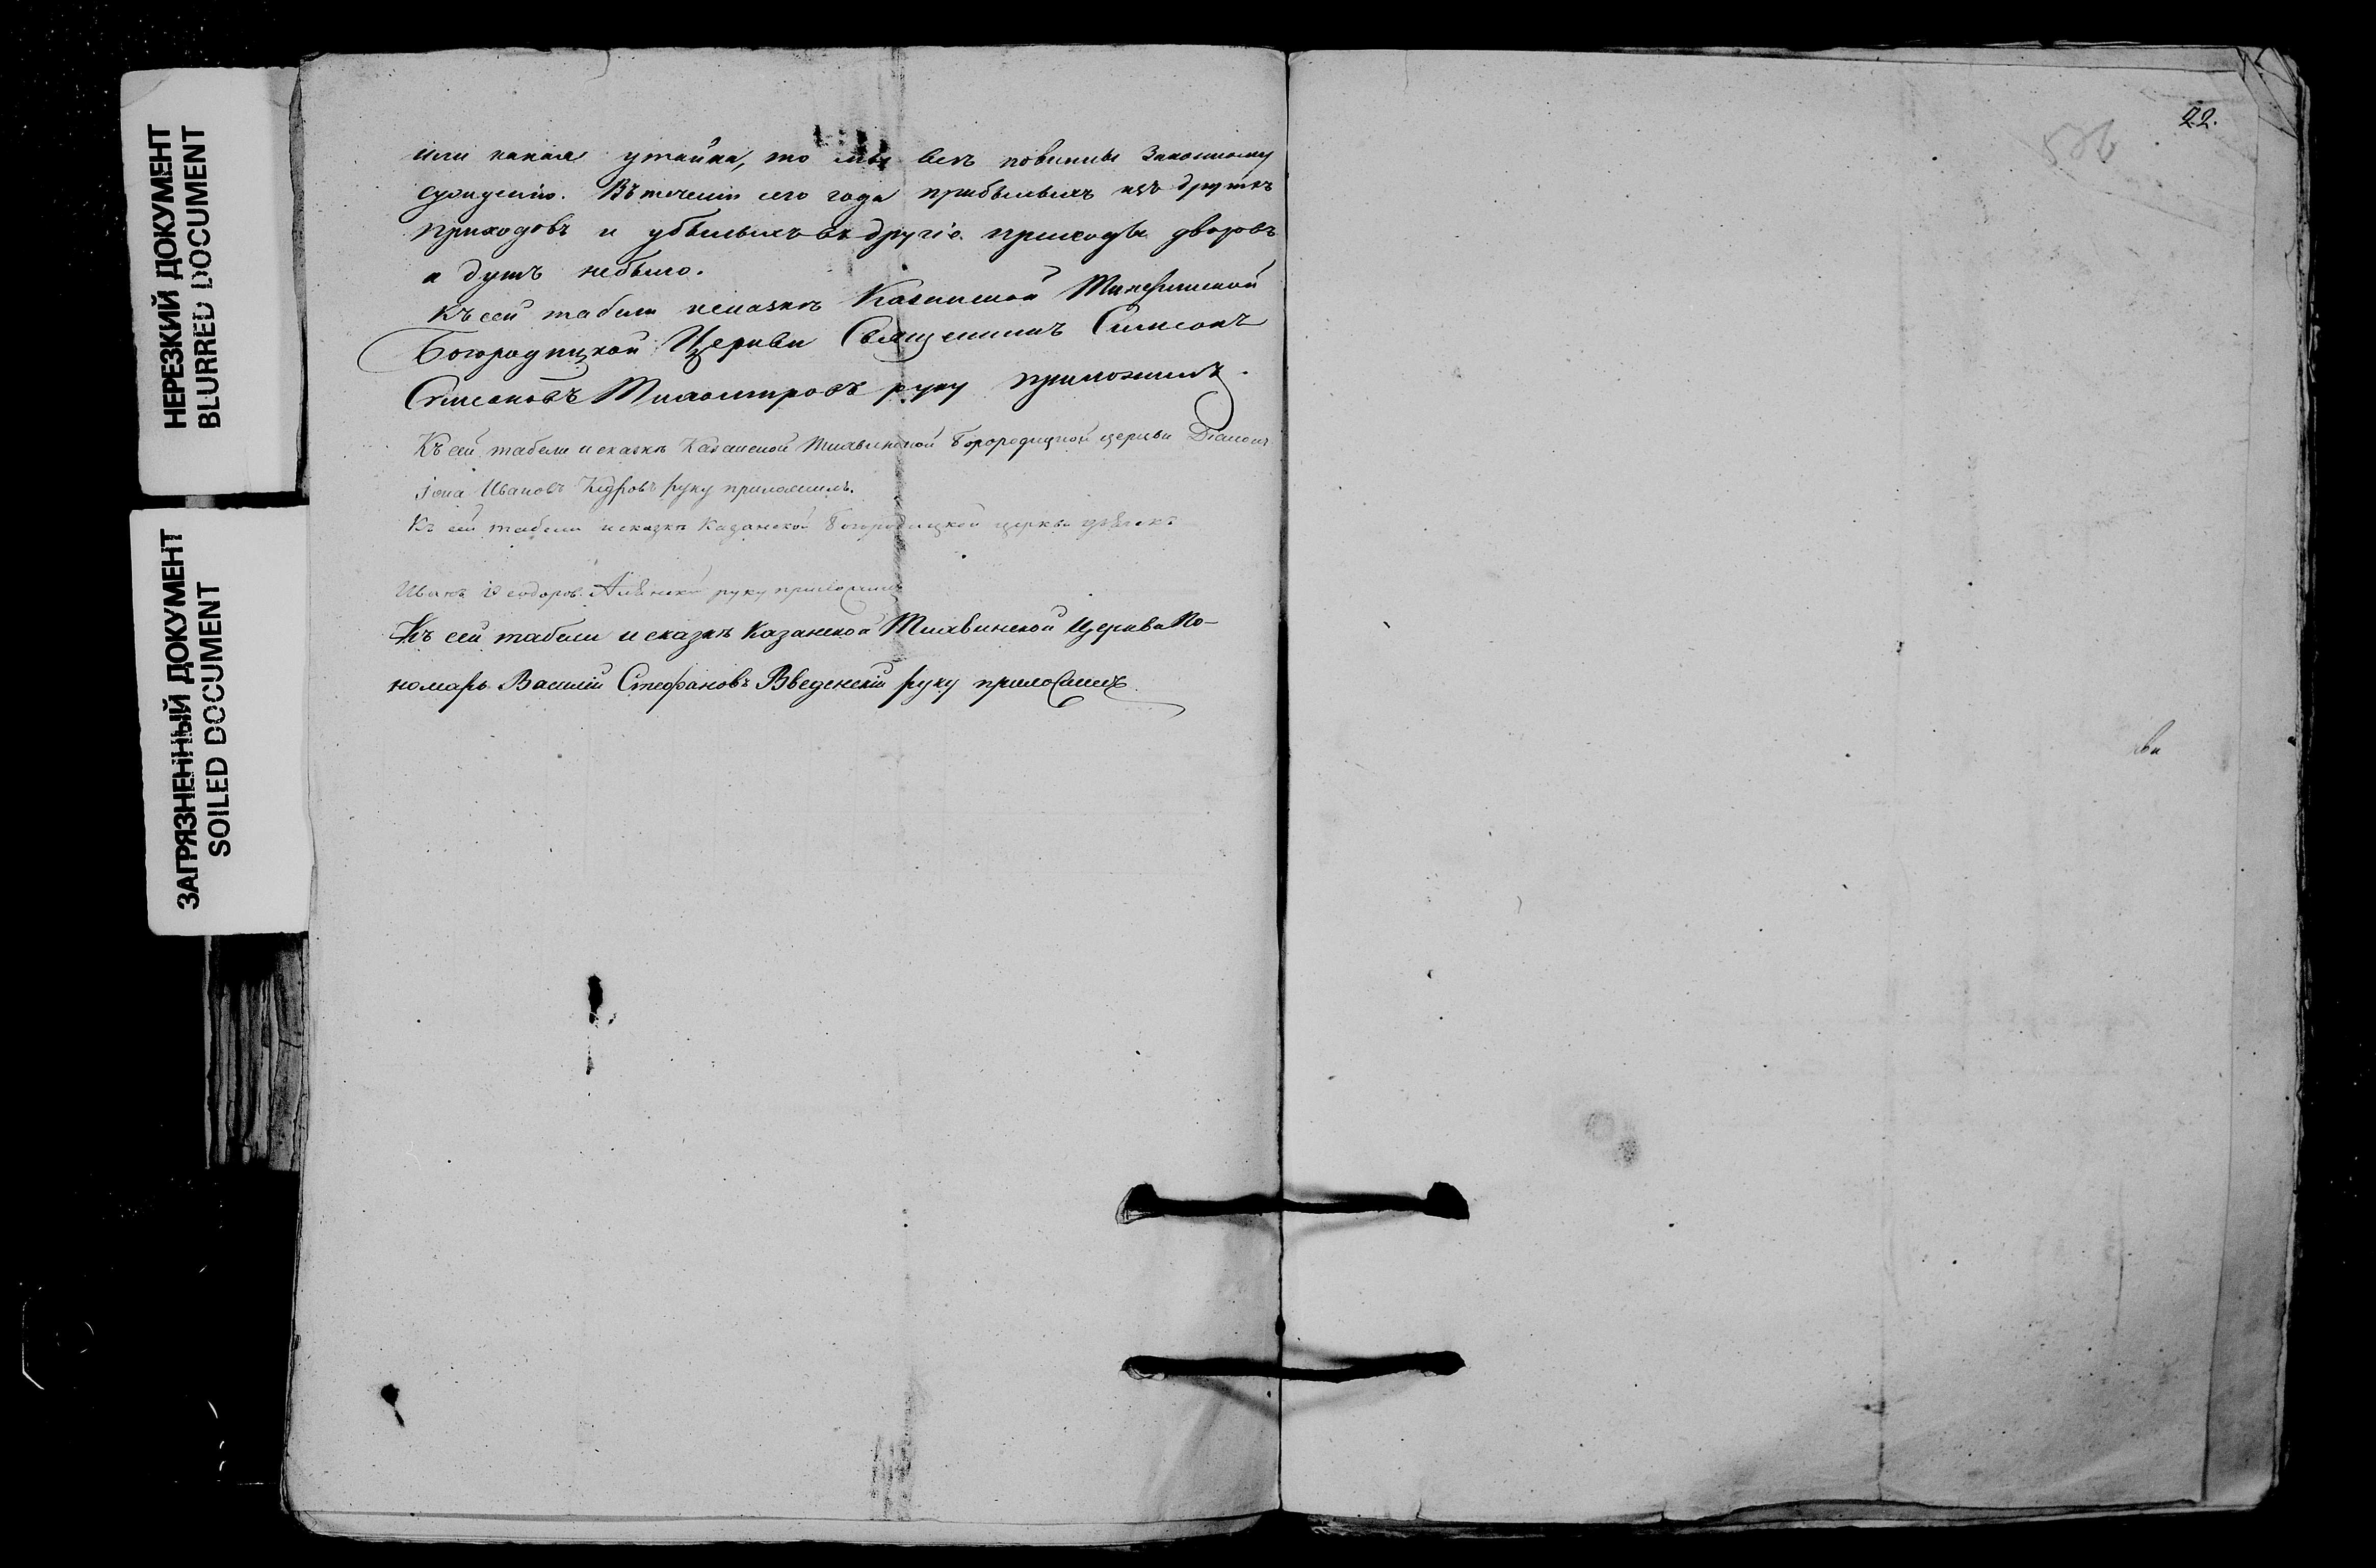 НЕРЕЗКИЙ ДОКУМЕНТ
BLURRED DOCUMENT
ЗАГРЯЗНЕННЫЙ ДОКУМЕНТ
SOILED DOCUMENT
или какая утайка, то мы всѣ повинны Законному
сужденію. Въ теченіи сего года прибылыхъ изъ другихъ
приходовъ и убылыхъ въ другіе приходы дворовъ
и душъ небыло.
Къ сей табели и сказкѣ Казанской
Богородицкой Церкви Священникъ Симеонъ
Симеоновъ руку приложилъ.
Къ сей табели и сказкѣ Казанской Тиявинской Богородицкой церкви Діаконъ
Іона Ивановъ руку приложилъ.
Къ сей табели и сказкѣ Казанской Богородицкой церкви дьячекъ
Иванъ Ѳеодоровъ руку приложилъ
Къ сей табели и сказкѣ Казанской Тиявинской Церкви По-
номарь Василій Стефановъ Введенскій руку приложилъ.
22.
526
ви